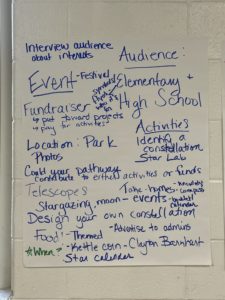 Interview audience
about interests
Audience:
Event - Festival
Elementary +
High School
Fundraiser
↳ put toward projects
↳ pay for activities
Activities
Identify a
constellation
Star Lab
Location: Park
Photos
Could your pathway
contribute to either activities or funds
Telescopes
Take homes -
Stargazing - moon - events -
calendar
Design your own constellation
Food: - Themed
- Advertise to admins
*When?
- Kettle corn - Clayton Barnhart
Star calendar